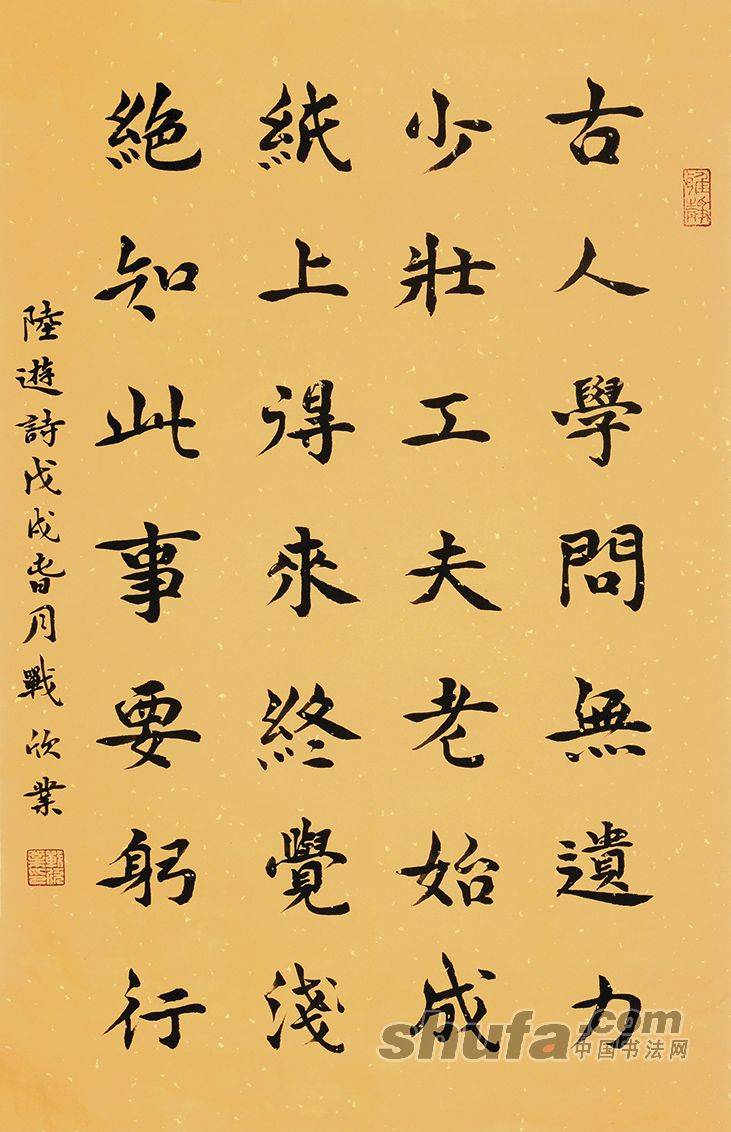 古人學問無遺力
少壯工夫老始成
紙上得來終覺淺
絶知此事要躬行
陸遊詩戊戌旾月戰欣業
shufa.com
中国书法网